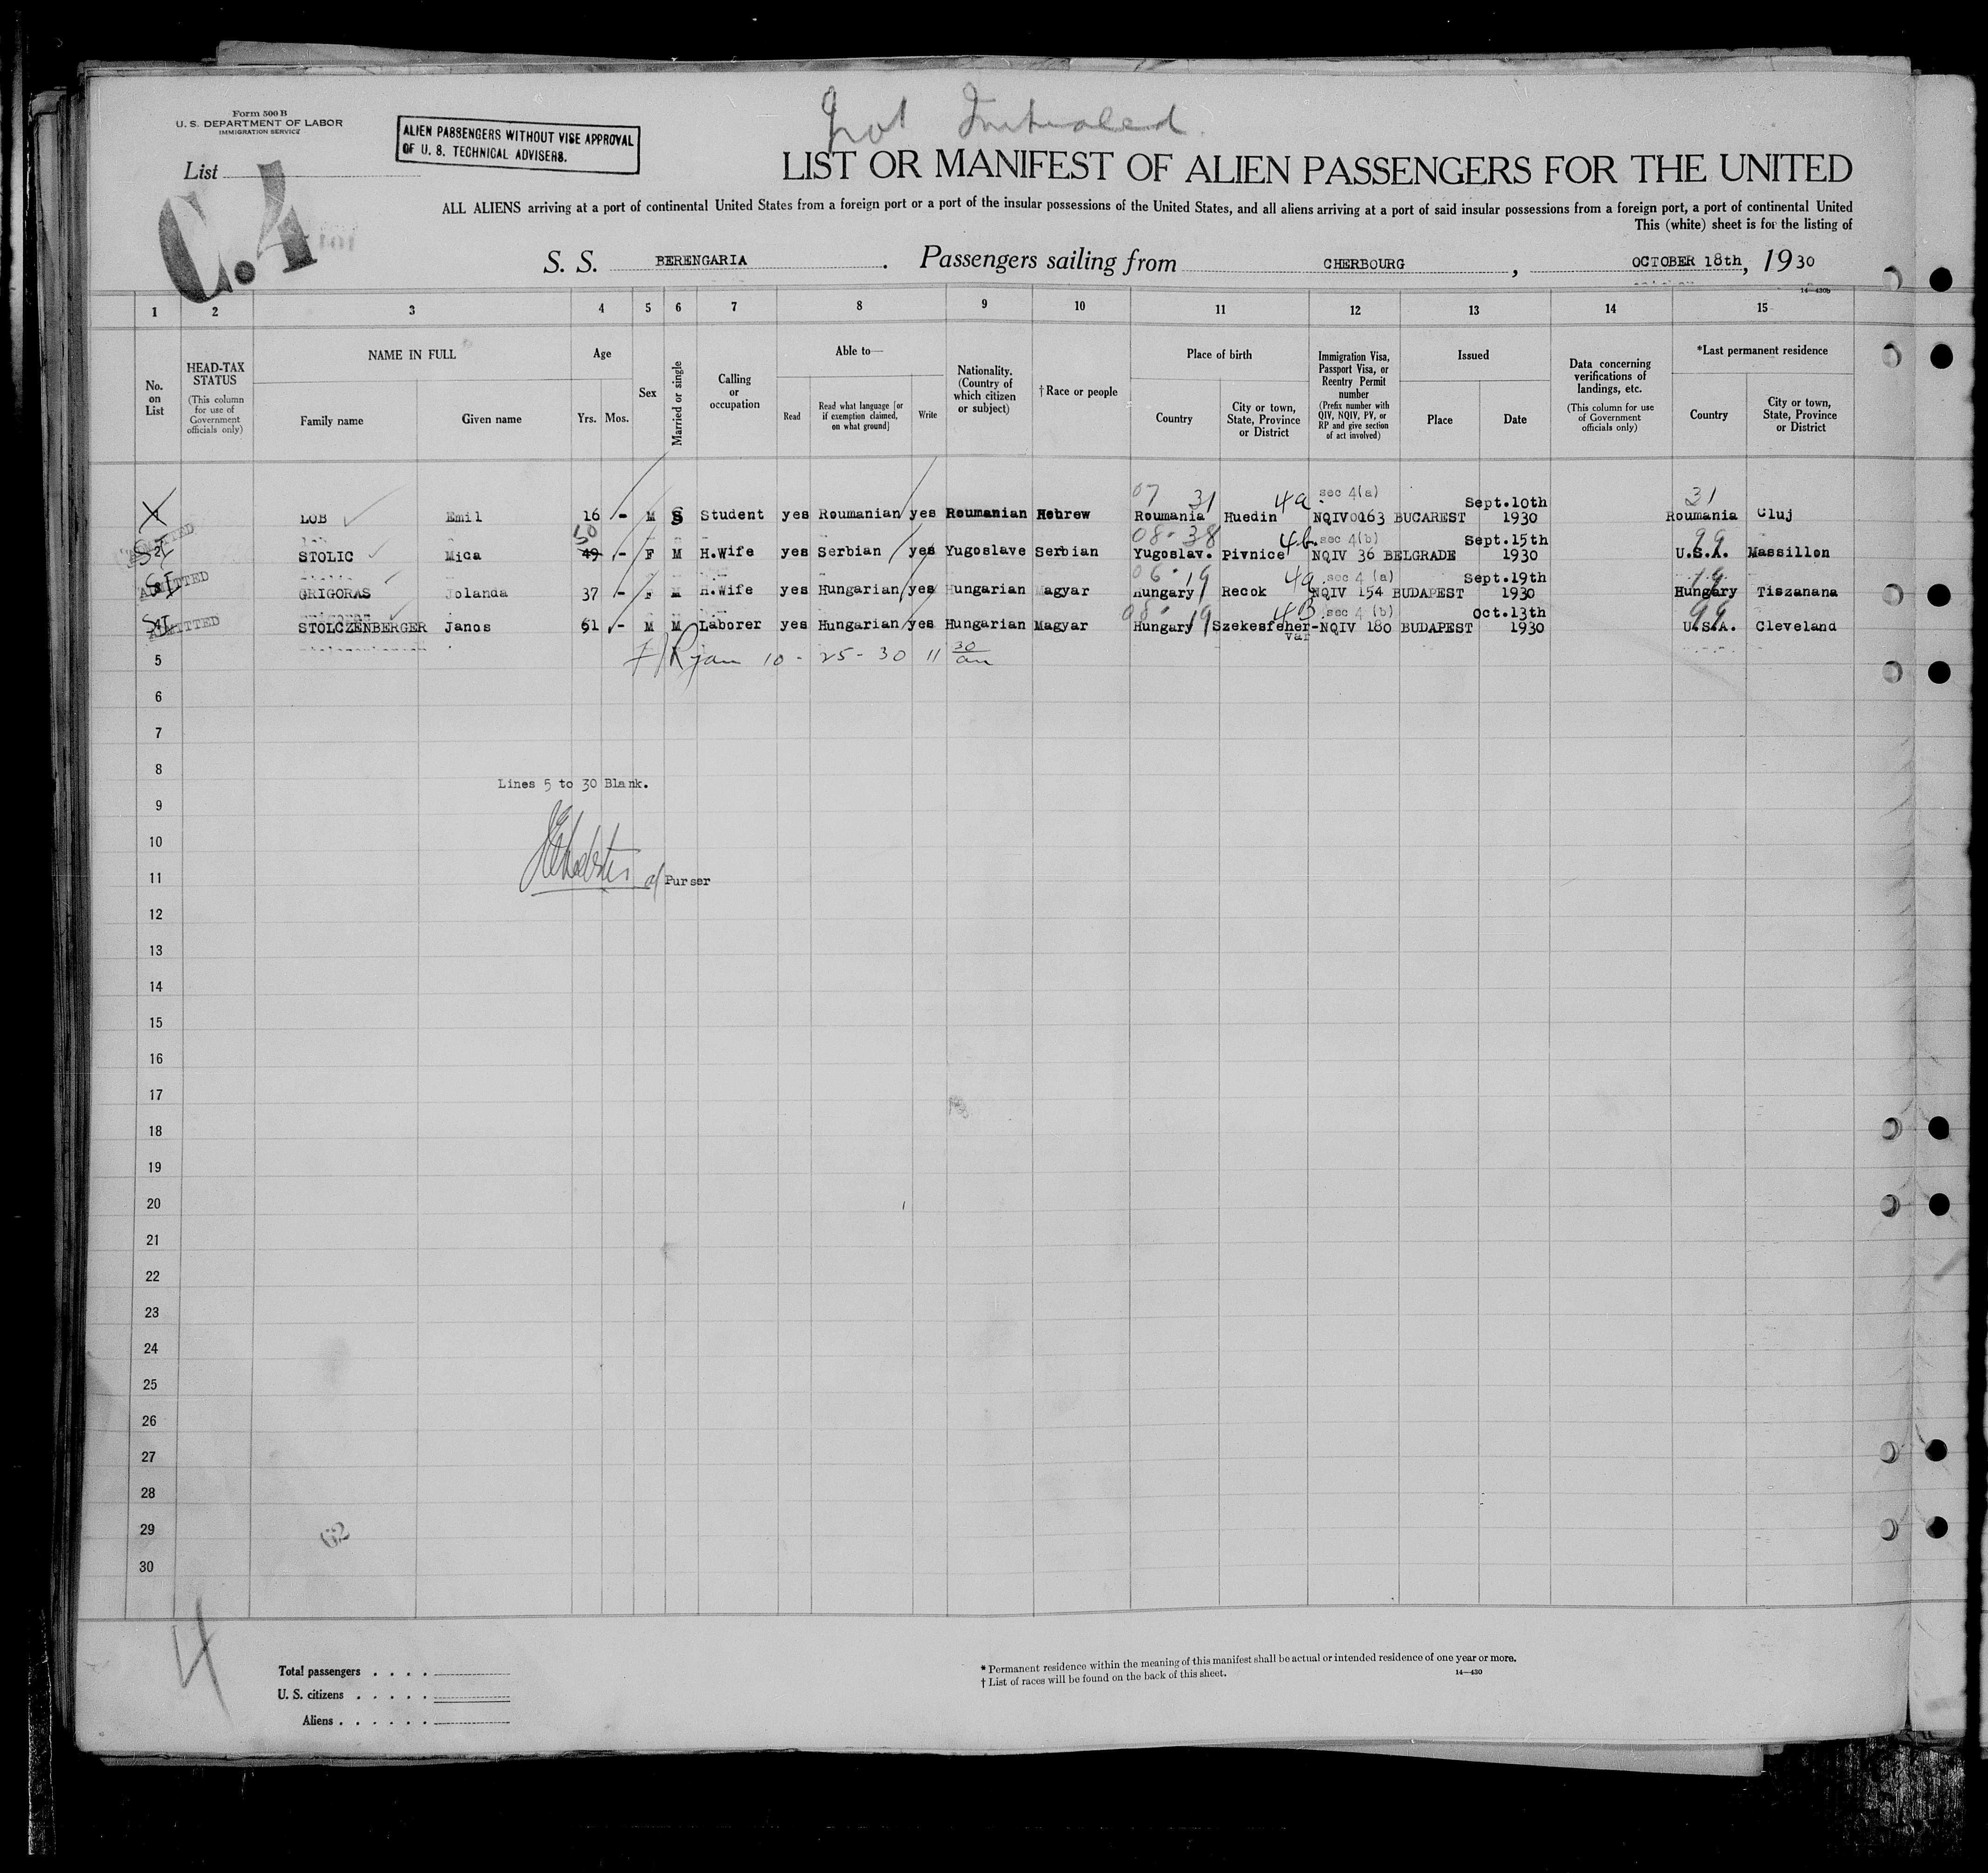 Not Initialed
Form 500 B
U. S. DEPARTMENT OF LABOR
IMMIGRATION SERVICE
ALIEN PASSENGERS WITHOUT VISE APPROVAL
OF U. S. TECHNICAL ADVISERS.
List
C.4
LIST OR MANIFEST OF ALIEN PASSENGERS FOR THE UNITED
ALL ALIENS arriving at a port of continental United States from a foreign port or a port of the insular possessions of the United States, and all aliens arriving at a port of said insular possessions from a foreign port, a port of continental United
This (white) sheet is for the listing of
S. S. BERENGARIA. Passengers sailing from CHERBOURG, OCTOBER 18th, 1930
14—430b
1 2 3 4 5 6 7 8 9 10 11 12 13 14 15
No. on List
HEAD-TAX STATUS (This column for use of Government officials only)
NAME IN FULL
Family name Given name
Age
Yrs. Mos.
Sex
Married or single
Calling or occupation
Able to—
Read Read what language [or if exemption claimed, on what ground] Write
Nationality. (Country of which citizen or subject)
†Race or people
Place of birth
Country City or town, State, Province or District
Immigration Visa, Passport Visa, or Reentry Permit number (Prefix number with QIV, NQIV, PV, or RP and give section of act involved)
Issued
Place Date
Data concerning verifications of landings, etc. (This column for use of Government officials only)
*Last permanent residence
Country City or town, State, Province or District
07 31 4a sec 4(a) Sept.10th 31
LOB Emil 16 - M S Student yes Roumanian yes Roumanian Hebrew Roumania Huedin NQIV0163 BUCAREST 1930 Roumania Cluj
ADMITTED 50 08-38 4b sec 4(b) Sept.15th 99
STOLIC Mica 49 - F M H.Wife yes Serbian yes Yugoslave Serbian Yugoslav. Pivnice NQIV 36 BELGRADE 1930 U.S.A. Massillon
ADMITTED 06-19 4a sec 4 (a) Sept.19th 19
GRIGORAS Jolanda 37 - F M H.Wife yes Hungarian yes Hungarian Magyar Hungary Recok NQIV 154 BUDAPEST 1930 Hungary Tiszanana
ADMITTED 08 19 4B sec 4 (b) Oct.13th 99
STOLCZENBERGER Janos 51 - M M Laborer yes Hungarian yes Hungarian Magyar Hungary Szekesfeher-var NQIV 180 BUDAPEST 1930 U.S.A. Cleveland
5 Ryan 10-25-30 11 30 am
6
7
8
Lines 5 to 30 Blank.
9
10
11 Purser
12
13
14
15
16
17
18
19
20
21
22
23
24
25
26
27
28
29
30
4
Total passengers
U. S. citizens
Aliens
* Permanent residence within the meaning of this manifest shall be actual or intended residence of one year or more.
† List of races will be found on the back of this sheet. 14—430